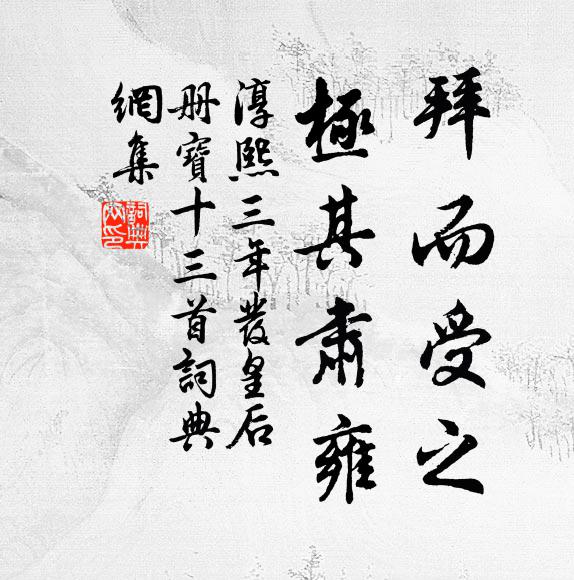 拜而受之
極其肅雍
淳熙三年發皇后
册寶十三首詞典
網集